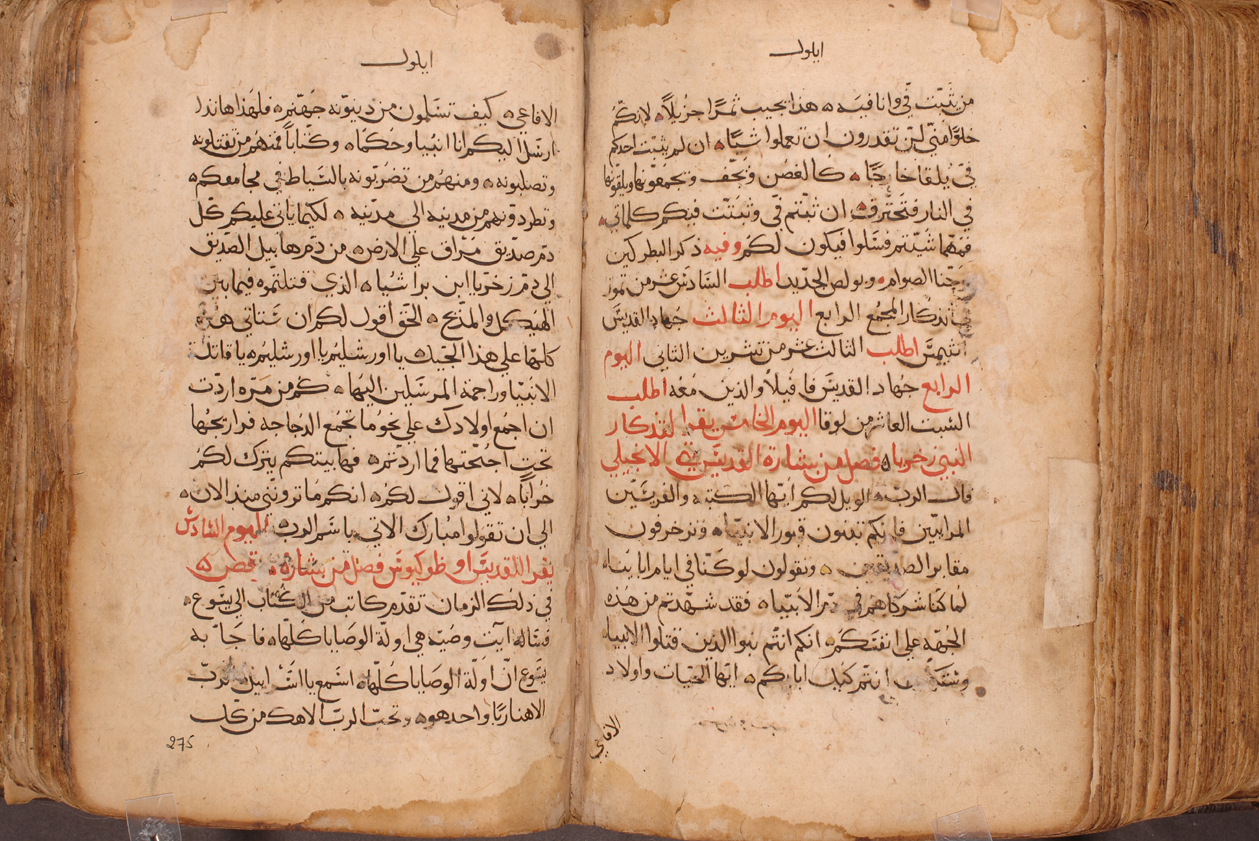 ايلول
من يثبت في وانا فيه هذا يجيب ثمرًا جزيلاً لانكم
خلوًا مني لن تقدرون ان تعملوا شيًا ان لم يثبت احدكم
في يلقا خارجًا كالغصن ويجف وتجمعونها ويلقونها
في النار فتحترق ان ثبتم في وثبتت فيكم كلماتي
فمهما شيتم فسلوا فيكون لكم وفيه ذكر البطركين
يوحنا الصوام وبولص الجديد اطلب السادس عشر من تموز
تذكار المجمع الرابع اليوم الثالث جهاد القديس
انثيمس اطلب الثالث عشر من تشرين الثاني اليوم
الرابع جهاد القديس فافيلا والذين معه اطلب
السبت العاشر من لوقا اليوم الخامس يقرا لتذكار
النبي زخريا فصل من بشارة القديس متى الانجيلي
قال الرب الويل لكم ايها الكتبه والفريسيين
المراييين فانكم تبنون قبور الانبياء وتزخرفون
مقابر الصديقين وتقولون لو كنا في ايام ابايناء
لما كنا شركاهم في دم الانبياء فقد شهدتم من هذه
الجهه على انفسكم انكم انتم بنوا الذين قتلوا الانبياء
وستكملون انتم كيل ابايكم ايها الحيات واولاد
الافاعي
ايلول
الافاعي كيف تسلمون من دينونه جهنم فلهذا هاندا
ارسل اليكم انا انبيا وحكماء وكتابًا فمنهم من تقتلونه
وتصلبونه ومنهم من تضربونه بالسياط في مجامعكم
وتطردونهم من مدينه الى مدينه لكيما ياتي عليكم كل
دم صديق مهراق على الارض من دم هابيل الصديق
الى دم زخريا ابن براشياء الذي قتلتموه فيما بين
الهيكل والمذبح الحق اقول لكم ان ستاتي هذه
كلها على هذا الجيل يا اورشليم يا اورشليم يا قاتلة
الانبيا وراجمة المرسلين اليها كم من مره اردت
ان اجمع اولادك على نحو ما تجمع الدجاجة فراريجها
تحت اجنحتها فما اردتم فها بيتكم يترك لكم
خرابًا لاني اقول لكم انكم ما تروني منذ الان
الى ان تقولوا مبارك الاتي باسم الرب اليوم السادس
يقرا للقديس اوظوكيوس فصل من بشارة قص
في ذلك الزمان تقدم كاتب من الكتاب الى يسوع
فساله ايت وصيه هي اولة الوصايا كلها فاجابه
يسوع ان اولة الوصايا كلها اسمع يا اسراييل الرب
الاهنا ربًا واحد هو وتحب الرب الاهك من كل
275